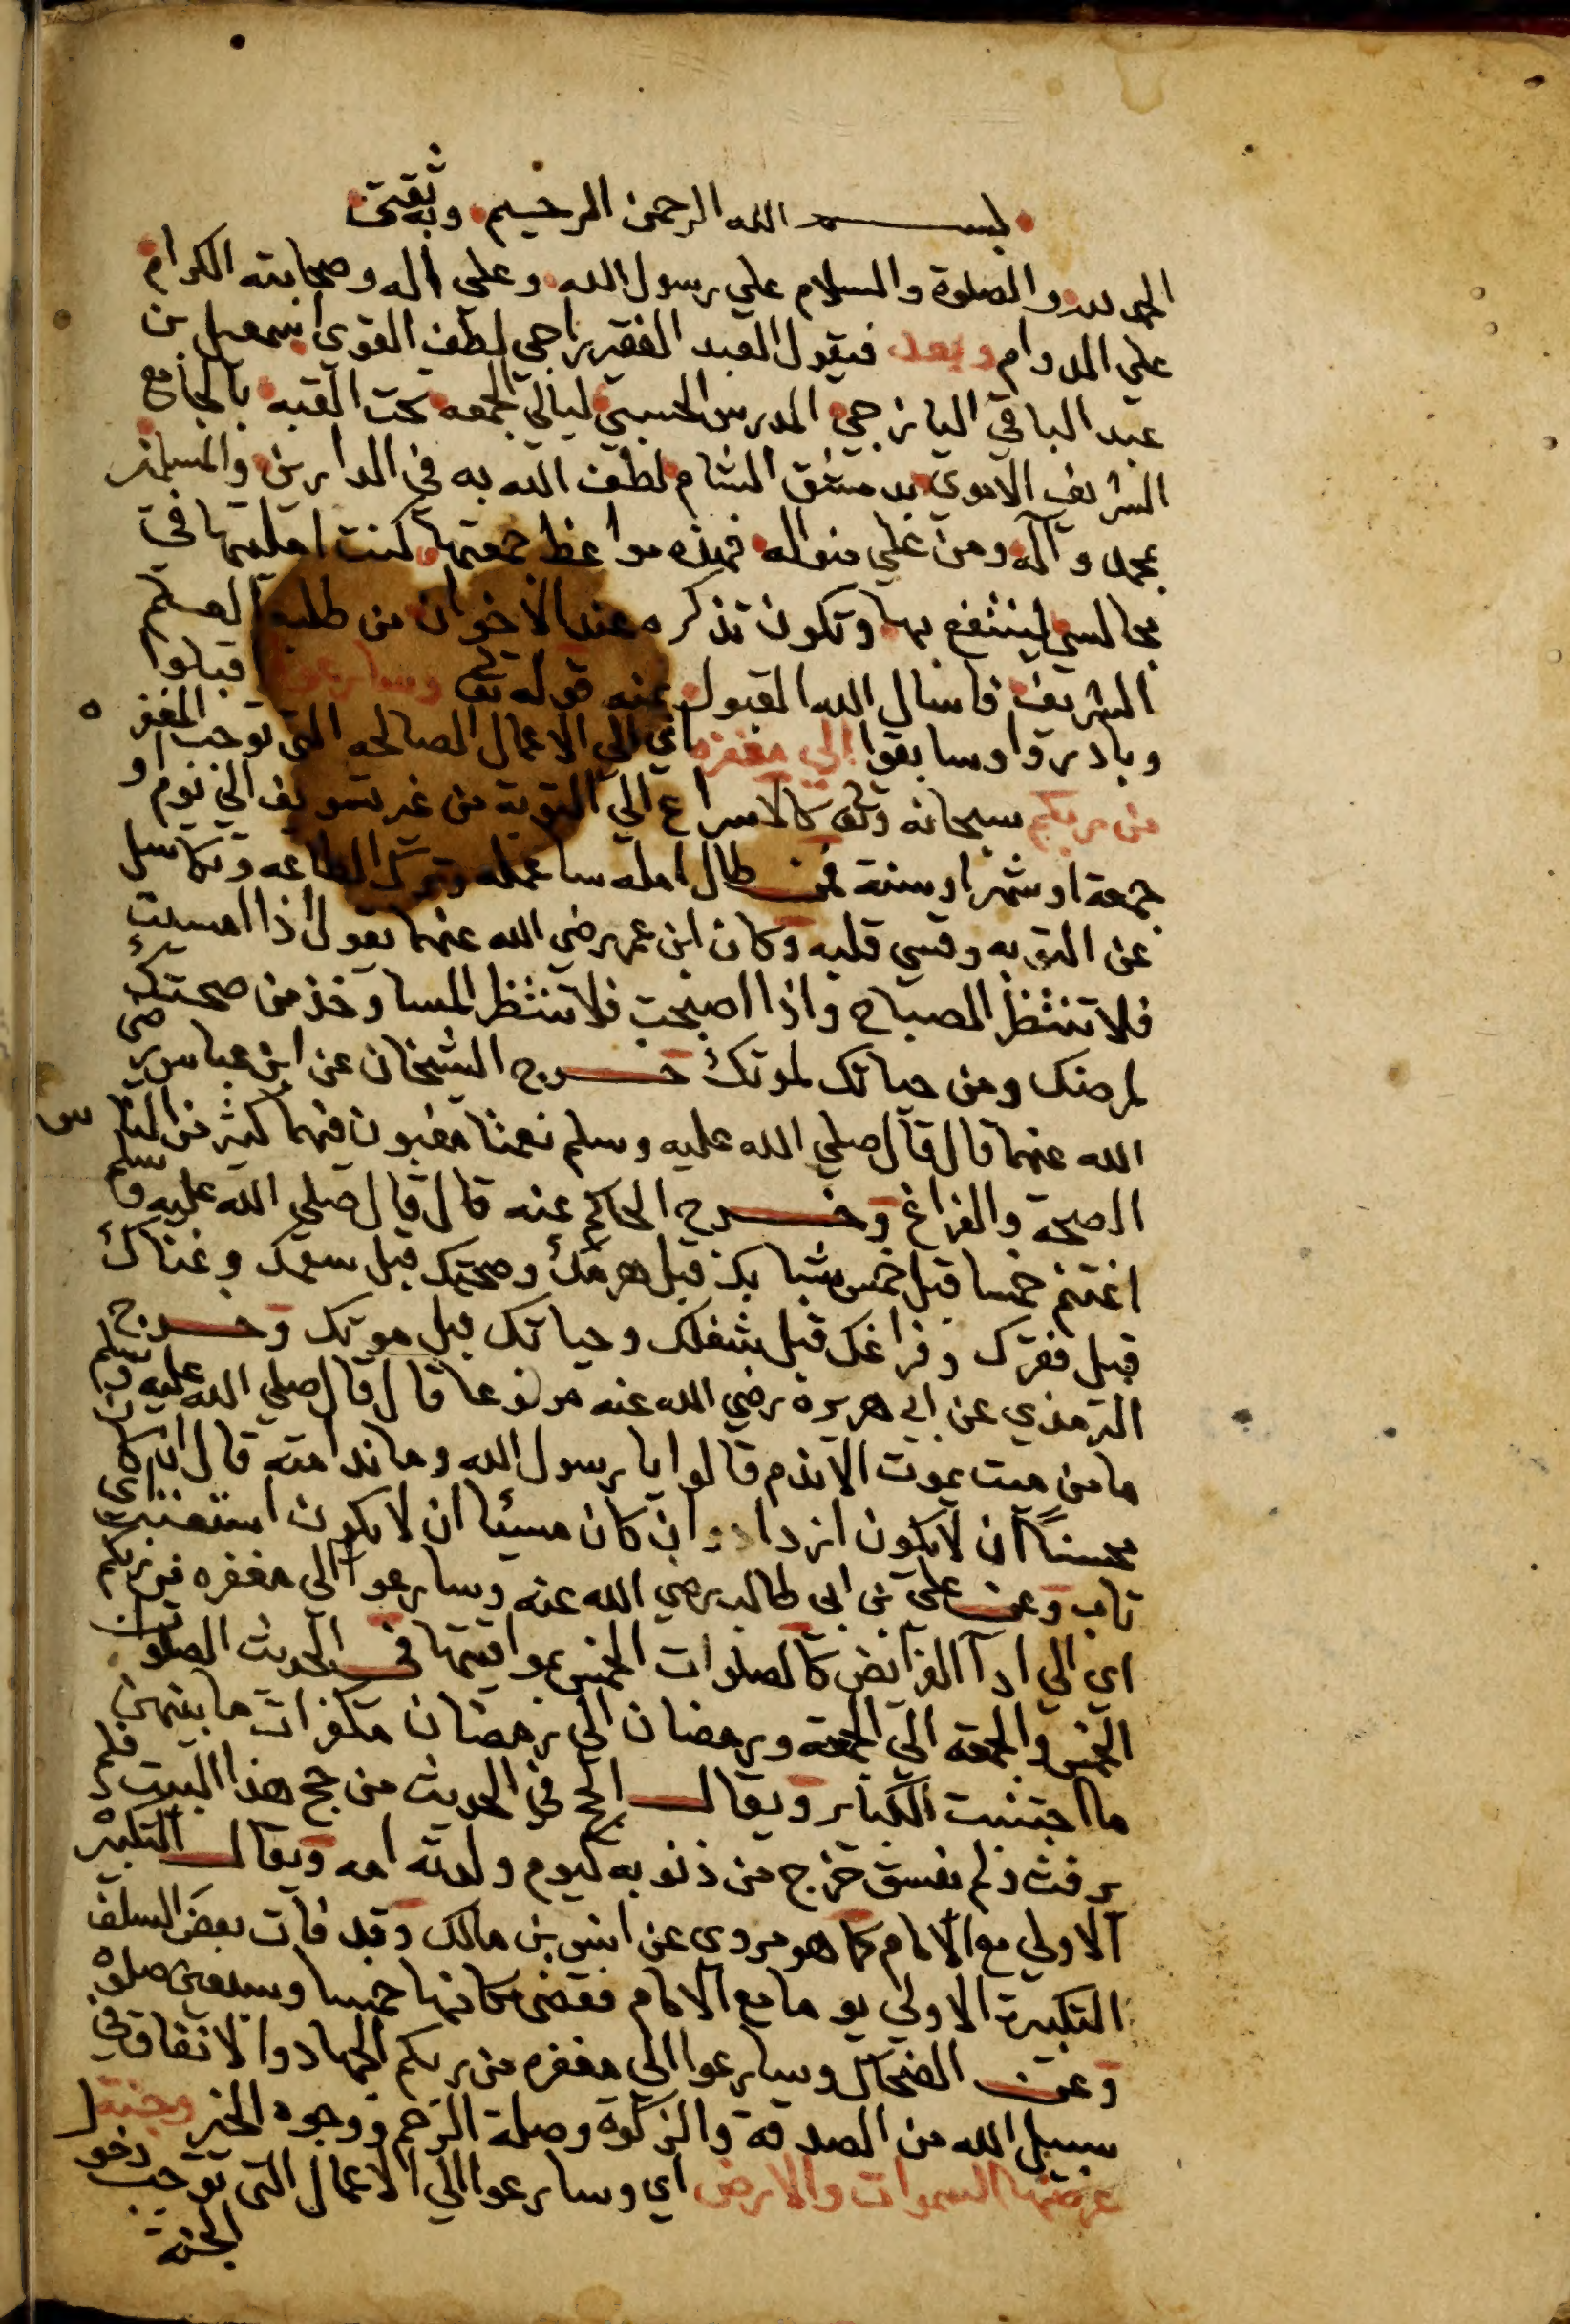 بسم الله الرحمن الرحيم وبه ثقتي
الحمد لله والصلوة والسلام علي رسول الله وعلي اله وصحابته الكرام
علي الدوام وبعد فيقول العبد الفقير راجي لطف القوي اسمعيل بن
عبد الباقي اليازجي المدرس الحسيني ليالي الجمعه تحت القبه بالجامع
الشريف الاموي بدمشق الشام لطف الله به في الدارين والمسلمين
بمحمد وآله ومن علي منواله فهذه مواعظ جمعتها كنت امليتها في
مجالسي لينتفع بها وتكون تذكره عند الاخوان من طلبه العلم
الشريف فاسال الله القبول عنه قوله تعا وسارعوا اقبلوا
وبادروا وسابقوا الي مغفره اي الي الاعمال الصالحه التي توجب المغفره
من ربكم سبحانه وتعا كالاسراع الي التوبة من غير تسويف الي يوم او
جمعة او شهر او سنة فمن طال امله ساء عمله وترك الطاعه وتكاسل
عن التوبه وقسي قلبه وكان ابن عمر رضي الله عنهما يقول اذا امسيت
فلا تنتظر الصباح واذا اصبحت فلا تنتظر المسا وخذ من صحتك
لمرضك ومن حياتك لموتك خرج الشيخان عن ابن عباس رضي
الله عنهما قال قال صلي الله عليه وسلم نعمتا مغبون فيهما كثير من الناس
الصحة والفراغ وخرج الحاكم عنه قال قال صلي الله عليه وسلم
اغتنم خمسا قبل خمس شبابك قبل هرمك وصحتك قبل سقمك وغناك
قبل فقرك وفراغك قبل شغلك وحياتك قبل موتك وخرج
الترمذي عن ابي هريرة رضي الله عنه مرفوعا قال قال صلي الله عليه وسلم
ما من ميت يموت الا ندم قالوا يا رسول الله وما ندامته قال ان كان
محسناً ان لا يكون ازداد وان كان مسيئا ان لا يكون استعتب اي
تاب وعن علي بن ابي طالب رضي الله عنه وسارعوا الي مغفره من ربكم
اي الي ادآ الفرائض كالصلوات الخمس بمواقيتها في الحديث الصلوات
الخمس والجمعه الي الجمعه ورمضان الي رمضان مكفرات ما بينهن
ما اجتنبت الكبائر ويقال الحج في الحديث من حج هذا البيت فلم
يرفث ولم يفسق خرج من ذنوبه كيوم ولدته امه ويقال التكبيرة
الاولي مع الامام كما هو مروي عن انس بن مالك وقد فات بعض السلف
التكبيرة الاولي يوما مع الامام فقضي مكانها خمسا وسبعين صلوة
وعن الضحاك وسارعوا الي مغفره من ربكم الجهاد والانفاق في
سبيل الله من الصدقة والزكوة وصلة الرحم ووجوه الخير وجنة
عرضها السموات والارض اي وسارعوا الي الاعمال التي توجب دخول
الجنة